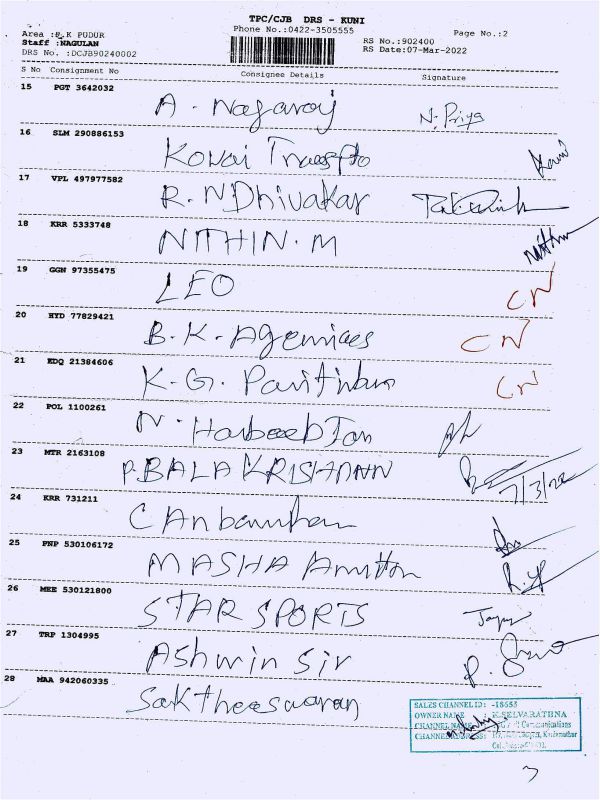 TPC/CJB DRS - KUNI
Phone No.:0422-3505555
Page No.:2
Area :R.K PUDUR
Staff :NAGULAN
DRS No. :DCJB90240002
RS No.:902400
RS Date:07-Mar-2022
S No Consignment No Consignee Details Signature
15 PGT 3642032 A. Nagaraj N. Priya
16 SLM 290886153 Kovai
17 VPL 497977582 R. N Dhivakar
18 KRR 5333748 NITHIN. M
19 GGN 97355475 LEO CN
20 HYD 77829421 B. K. Agencies CN
21 EDQ 21384606 K. G. CN
22 POL 1100261 N. Habeeb Jan
23 MTR 2163108 P. BALA KRISHANN 7/3/22
24 KRR 731211
25 PNP 530106172 MASHA
26 MEE 530121800 STAR SPORTS
27 TRP 1304995 Ashwin Sir
28 MAA 942060335 Saktheeswaran
SALES CHANNEL ID: -18653
OWNER NAME K.SELVARATHNA
CHANNEL NAME Communications
CHANNEL ADDRESS:
3